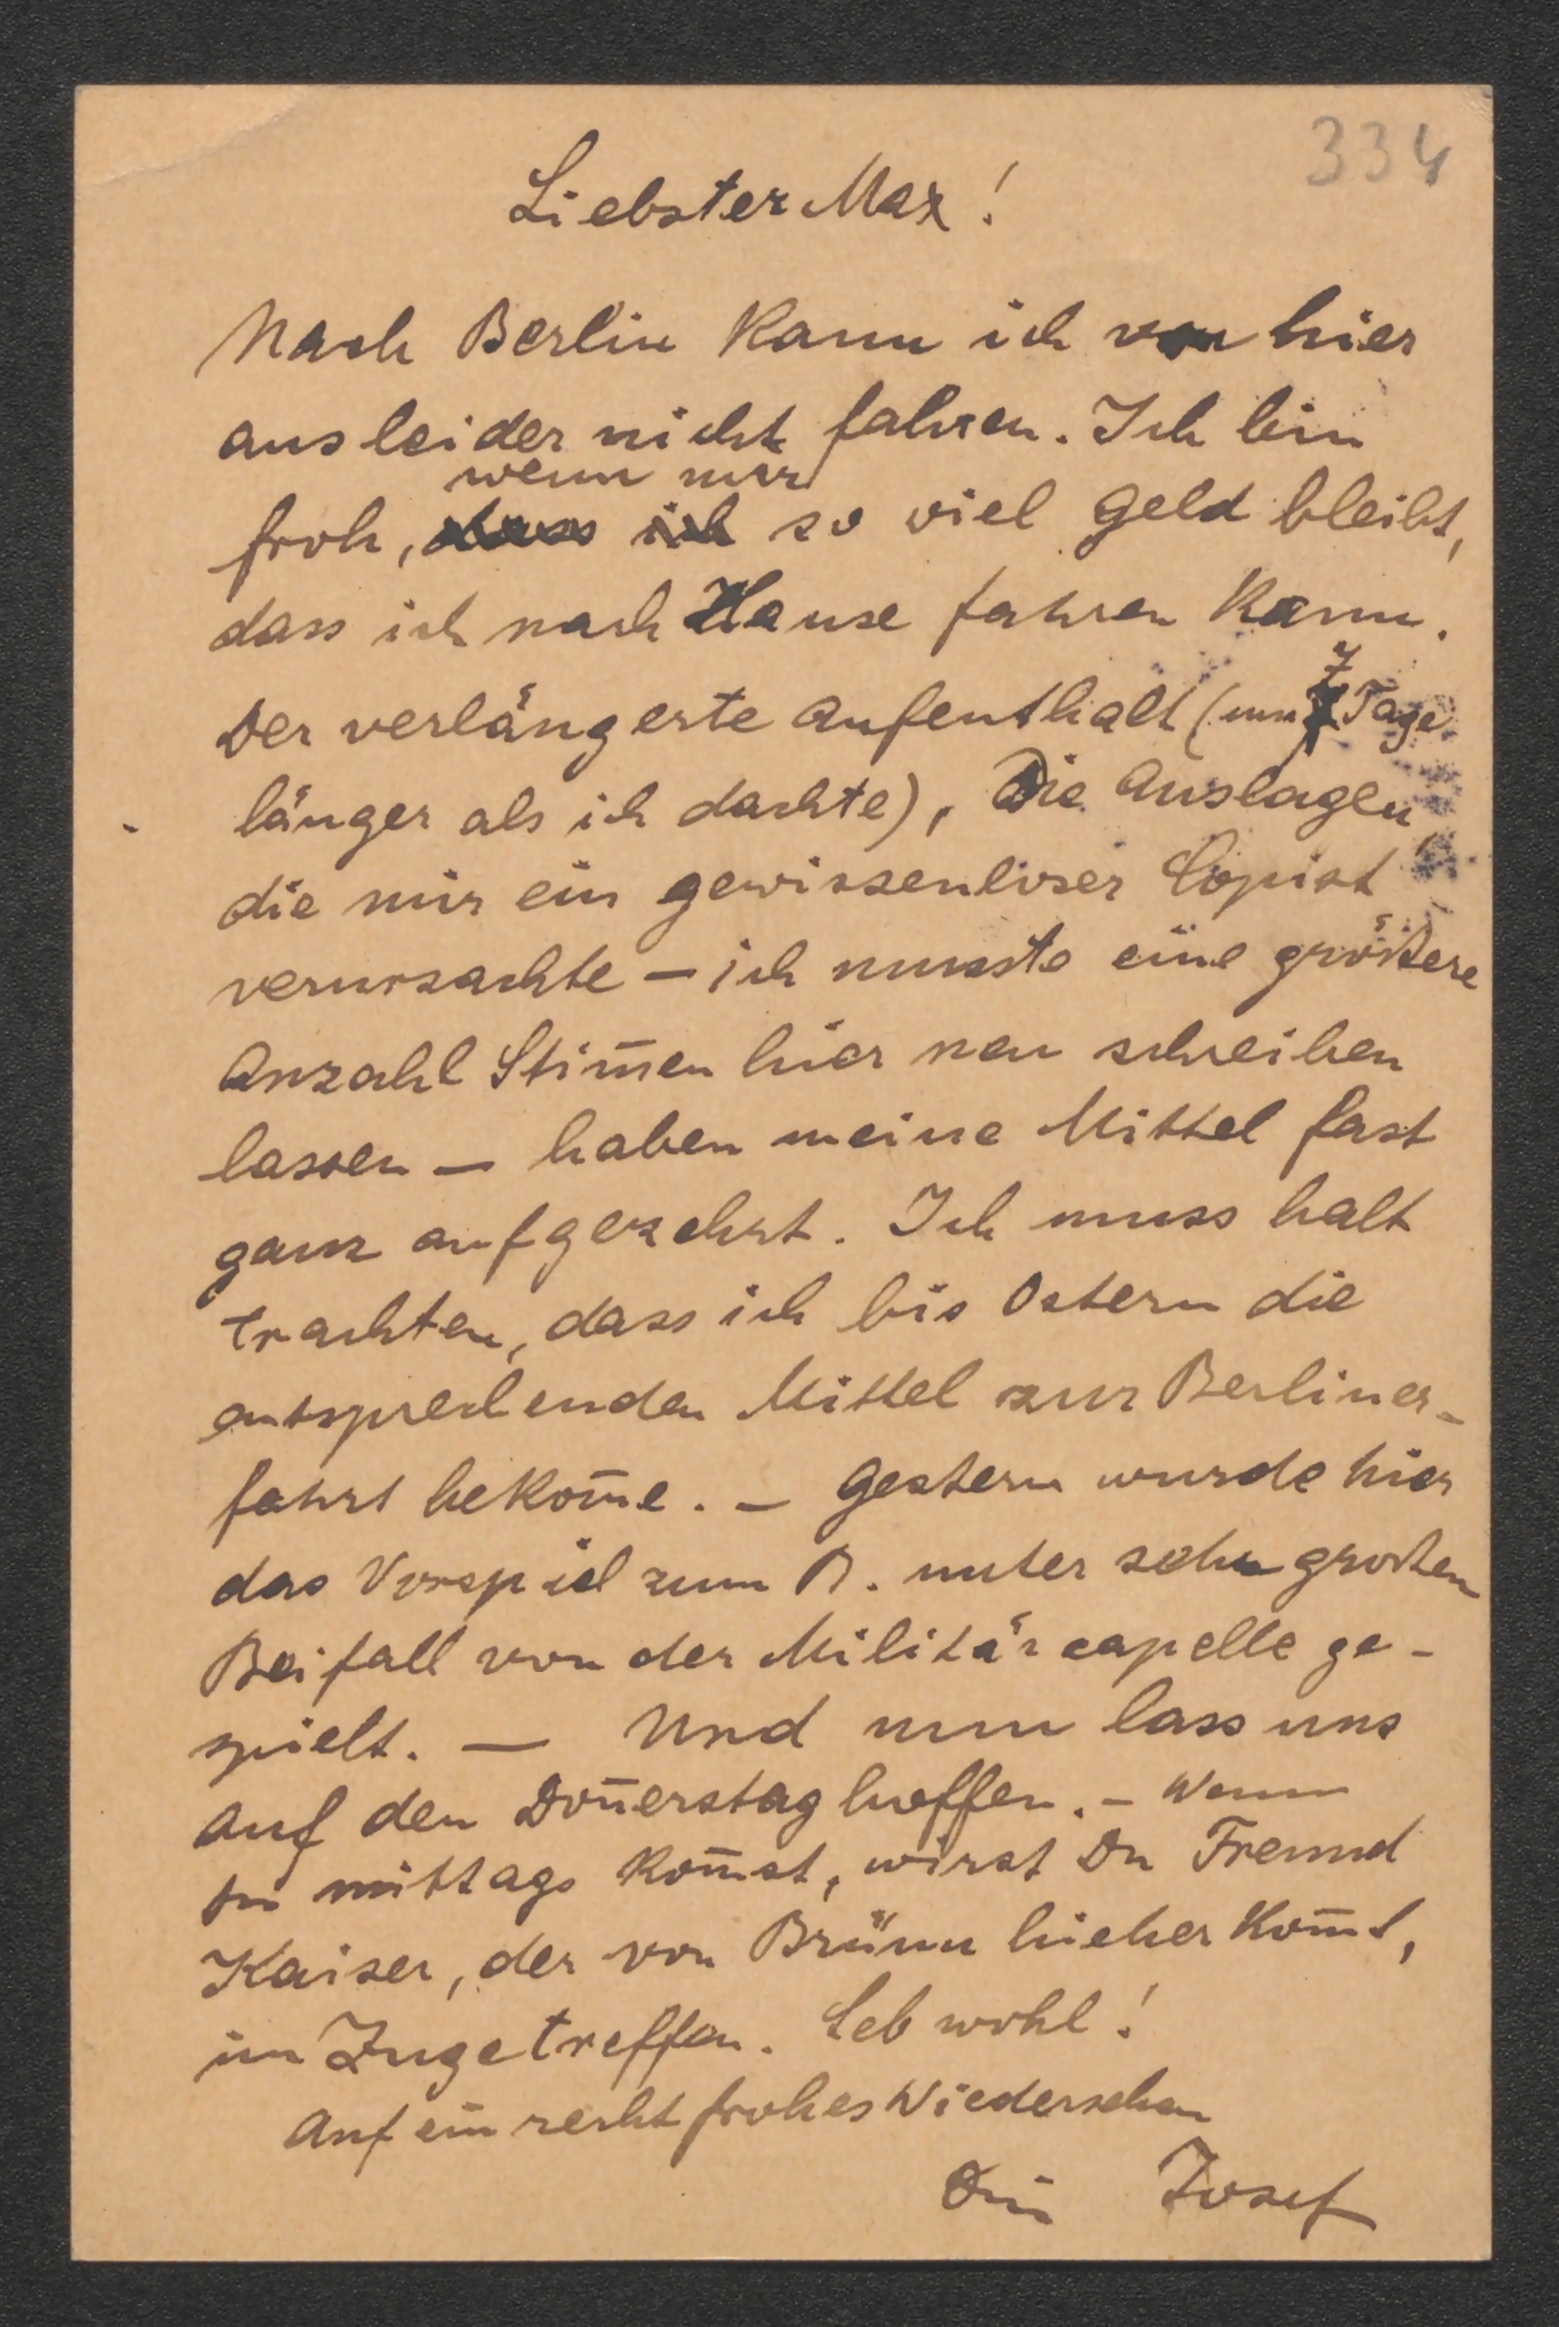 334
Liebster Max!
Nach Berlin kann ich von hier
aus leider nicht fahren. Ich bin
wenn mir
froh, dass ich so viel Geld bleibt,
dass ich nach Hause fahren kann.
Der verlängerte Aufenthalt (um 7 Tage
länger als ich dachte), die Auslagen,
die mir ein gewissenloser Copist
verursachte – ich musste eine größere
Anzahl Stim̅en hier neu schreiben
lassen – haben meine Mittel fast
ganz aufgezehrt. Ich muss halt
trachten, dass ich bis Ostern die
entsprechenden Mittel zur Berliner-
fahrt bekom̅e. – Gestern wurde hier
das Vorspiel zum R. unter sehr großen
Beifall von der Militärcapelle ge-
spielt. – Und nun lass uns
auf den Don̅erstag hoffen. – Wenn
Du mittags kom̅st, wirst Du Freund
Kaiser, der von Brünn hieher kom̅t,
im Zuge treffen. Leb wohl!
Auf ein recht frohes Wiedersehen
Dein Josef